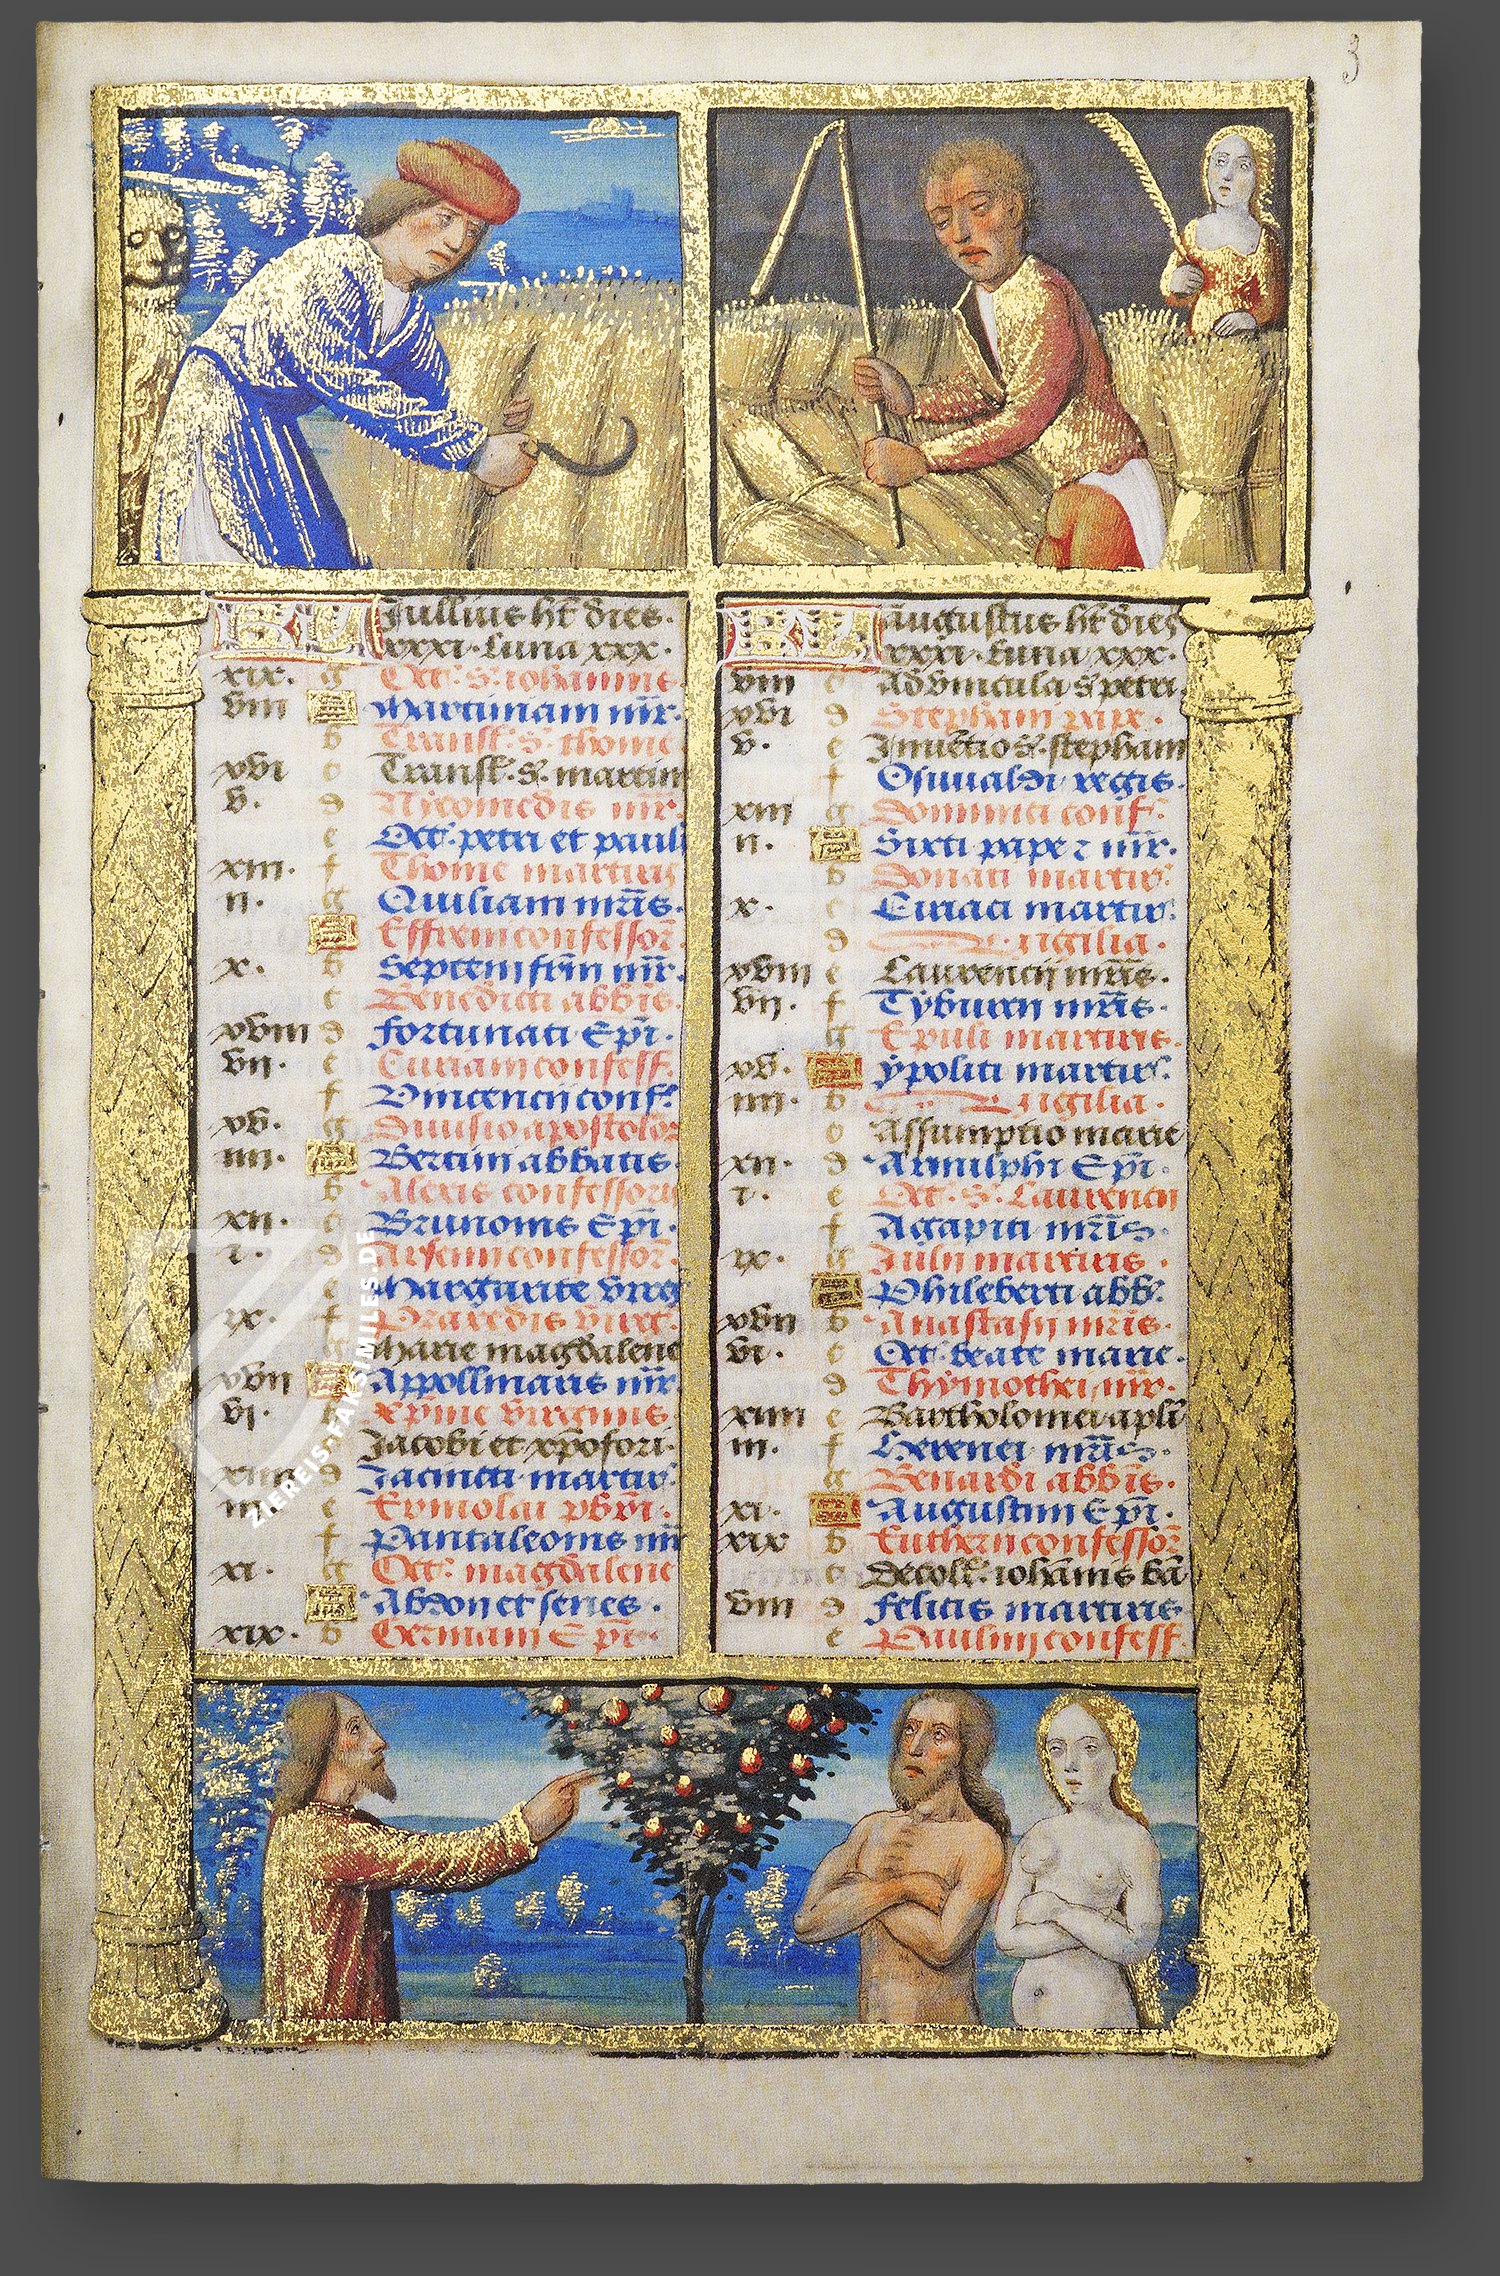 3
KL Jullius ht dies.
xxxi. luna xxx.
xix. g Oct. S. iohannis
viii A Martiniani mr.
b Transl. S. thome
xvi c Transl. S. martini
v. d Nicomedis mr.
e Oct. petri et pauli
xiii. f Thome martiris
ii. g Quiliani mris.
A Effrem confessor
x. b Septem frm mr.
c Benedicti abbis
xviii d Fortunati Epi.
vii. e Ciriani confess.
f Vincencii conf.
xv. g Divisio apostolor
iiii. A Bertini abbatis
b Alexis confessoris
xii. c Brunonis Epi.
i. d Arsenii confessor.
e Margarite virg
ix. f Praxedis virg.
g Marie magdalene
xvii A Appollinaris mr
vi. b Xpine virginis
c Jacobi et xpofori.
xiiii d Jacincti martir.
iii e Ermolai pbri.
f Pantaleonis mr
xi. g Oct. magdalene
A Abdon et senes.
xix. b Germani Epi.
KL augustus ht dies
xxxi. luna xxx.
viii c Ad vincula S petri.
xvi d Stephani pape.
v. e Inventio S. stephani
f Osuualdi regis.
xiii g Dominici conf.
ii. A Sixti pape z mr.
b Donati martir.
x. c Ciriaci martir.
d Vigilia.
xviii e Laurencii mris.
vii. f Tyburcii mris.
g Epuli martiris.
xv. A Ypoliti martir.
iiii. b Vigilia.
c Assumptio marie
xii. d Arnulphi Epi.
i. e Oct. S. Laurencii
f Agapiti mris.
ix. g Julii martiris.
A Phileberti abb.
xvii b Anastasii mris.
vi. c Oct. beate marie.
d Thymothei mr.
xiiii e Bartholomei apli
iii. f Herenei mris.
g Benardi abbis.
xi. A Augustini Epi.
xix b Eutherii confessor
c Decoll. iohanis ba
viii d Felicis martiris
e Paulini confess.
ZIEREIS-FAKSIMILES.DE